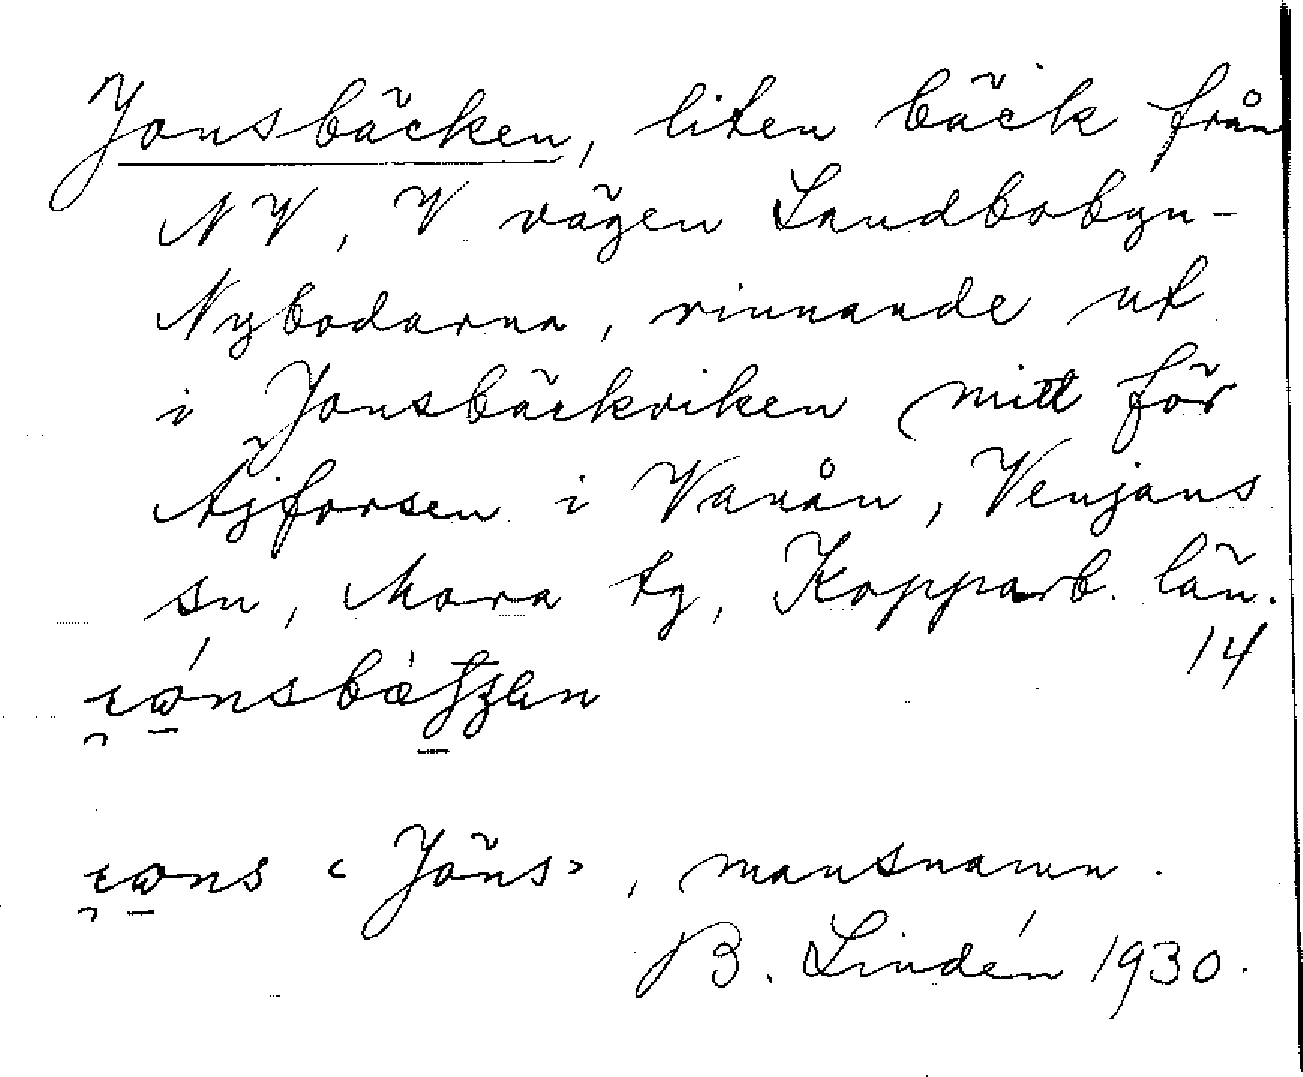 Jonsbäcken, liten bäck från
NV, V vägen Landbobyn-
Nybodarna, rinnande ut
i Jonsbäckviken mitt för
Äjforsen i Vanån, Venjans
sn, Mora tg, Kopparb. län.
14
‹Jöns›, mansnamn.
B. Lindén 1930.